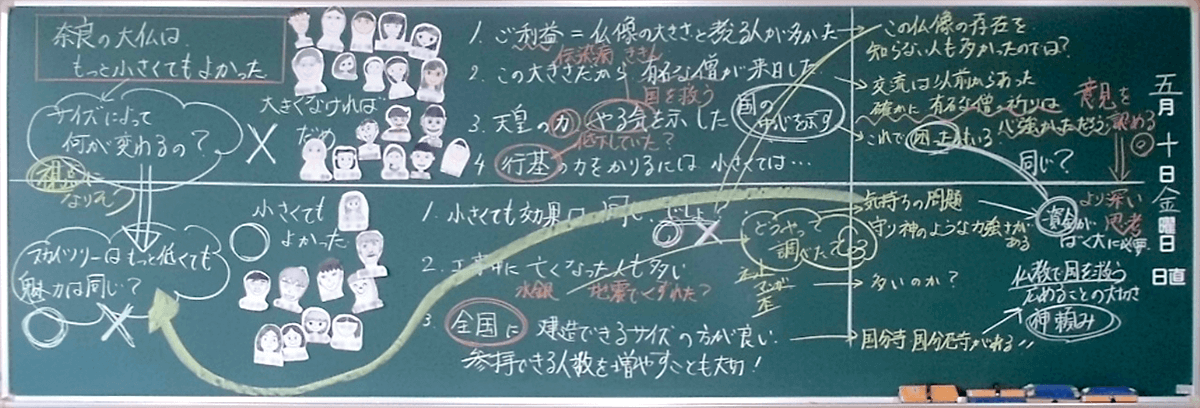 奈良の大仏は、
もっと小さくてもよかった
サイズによって
何が変わるの？
視点に
なりそう
スカイツリーはもっと低くても
魅力は同じ？
大きくなければ
だめ
小さくても
よかった
1. ご利益＝仏像の大きさと考える人が多かた
伝染病 ききん
2. この大きさだから 有名な僧が来日した
国を救う
3. 天皇の力 やる気を示した
国の
中心を示す
4 行基の力をかりるには 小さくては…
1. 小さくても効果は同じ
2. 工事中に亡くなった人も多い
水銀 地震でくずれた？
3. 全国に 建造できるサイズの方が良い
参拝できる人数を増やすことも大切！
どうやって
調べたの
この仏像の存在を
知らない人も多かったのでは？
交流は以前からあった
確かに 有名な僧の祈りは
心強かっただろう
これで
同じ？
意見を
認める
より深い
思考
気持ちの問題
守り神のような力強さが
ある
資金が
ばく大に必要
多いのか？
仏教で国を救う
広めることの大切さ
神頼み
国分寺 国分尼寺がある
五月十日金曜日
日直